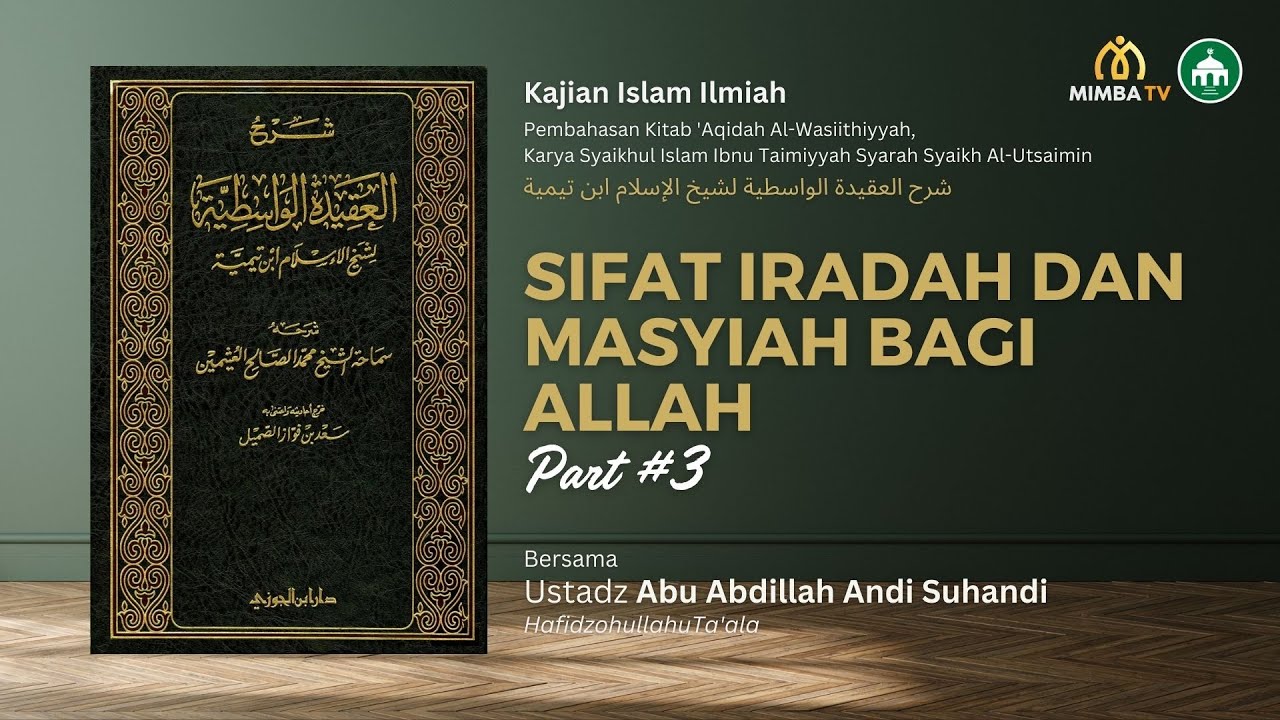 شرح
العقيدة الواسطية
لشيخ الإسلام ابن تيمية
شرحه
سماحة الشيخ محمد الصالح العثيمين
خرج أحاديثه واعتنى به
سعد بن فواز الصميل
دار ابن الجوزي
MIMBA TV
Kajian Islam Ilmiah
Pembahasan Kitab 'Aqidah Al-Wasiithiyyah,
Karya Syaikhul Islam Ibnu Taimiyyah Syarah Syaikh Al-Utsaimin
شرح العقيدة الواسطية لشيخ الإسلام ابن تيمية
SIFAT IRADAH DAN
MASYIAH BAGI
ALLAH
Part #3
Bersama
Ustadz Abu Abdillah Andi Suhandi
HafidzohullahuTa'ala